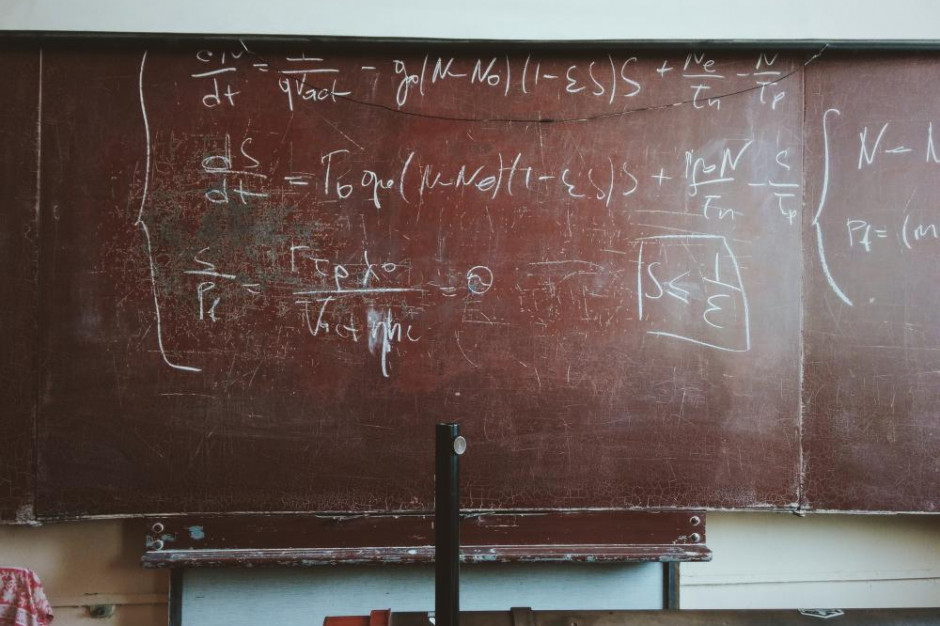 dN/dt = I/qVact - g0(N-N0)(1-εS)S + Ne/τn - N/τp
dS/dt = Γ0g0(N-N0)(1-εS)S + N/τn - S/τp
S/Pf = Γτpλ0/Vactηhc =
S ≤ 1/ε
N = N
Pf = (m